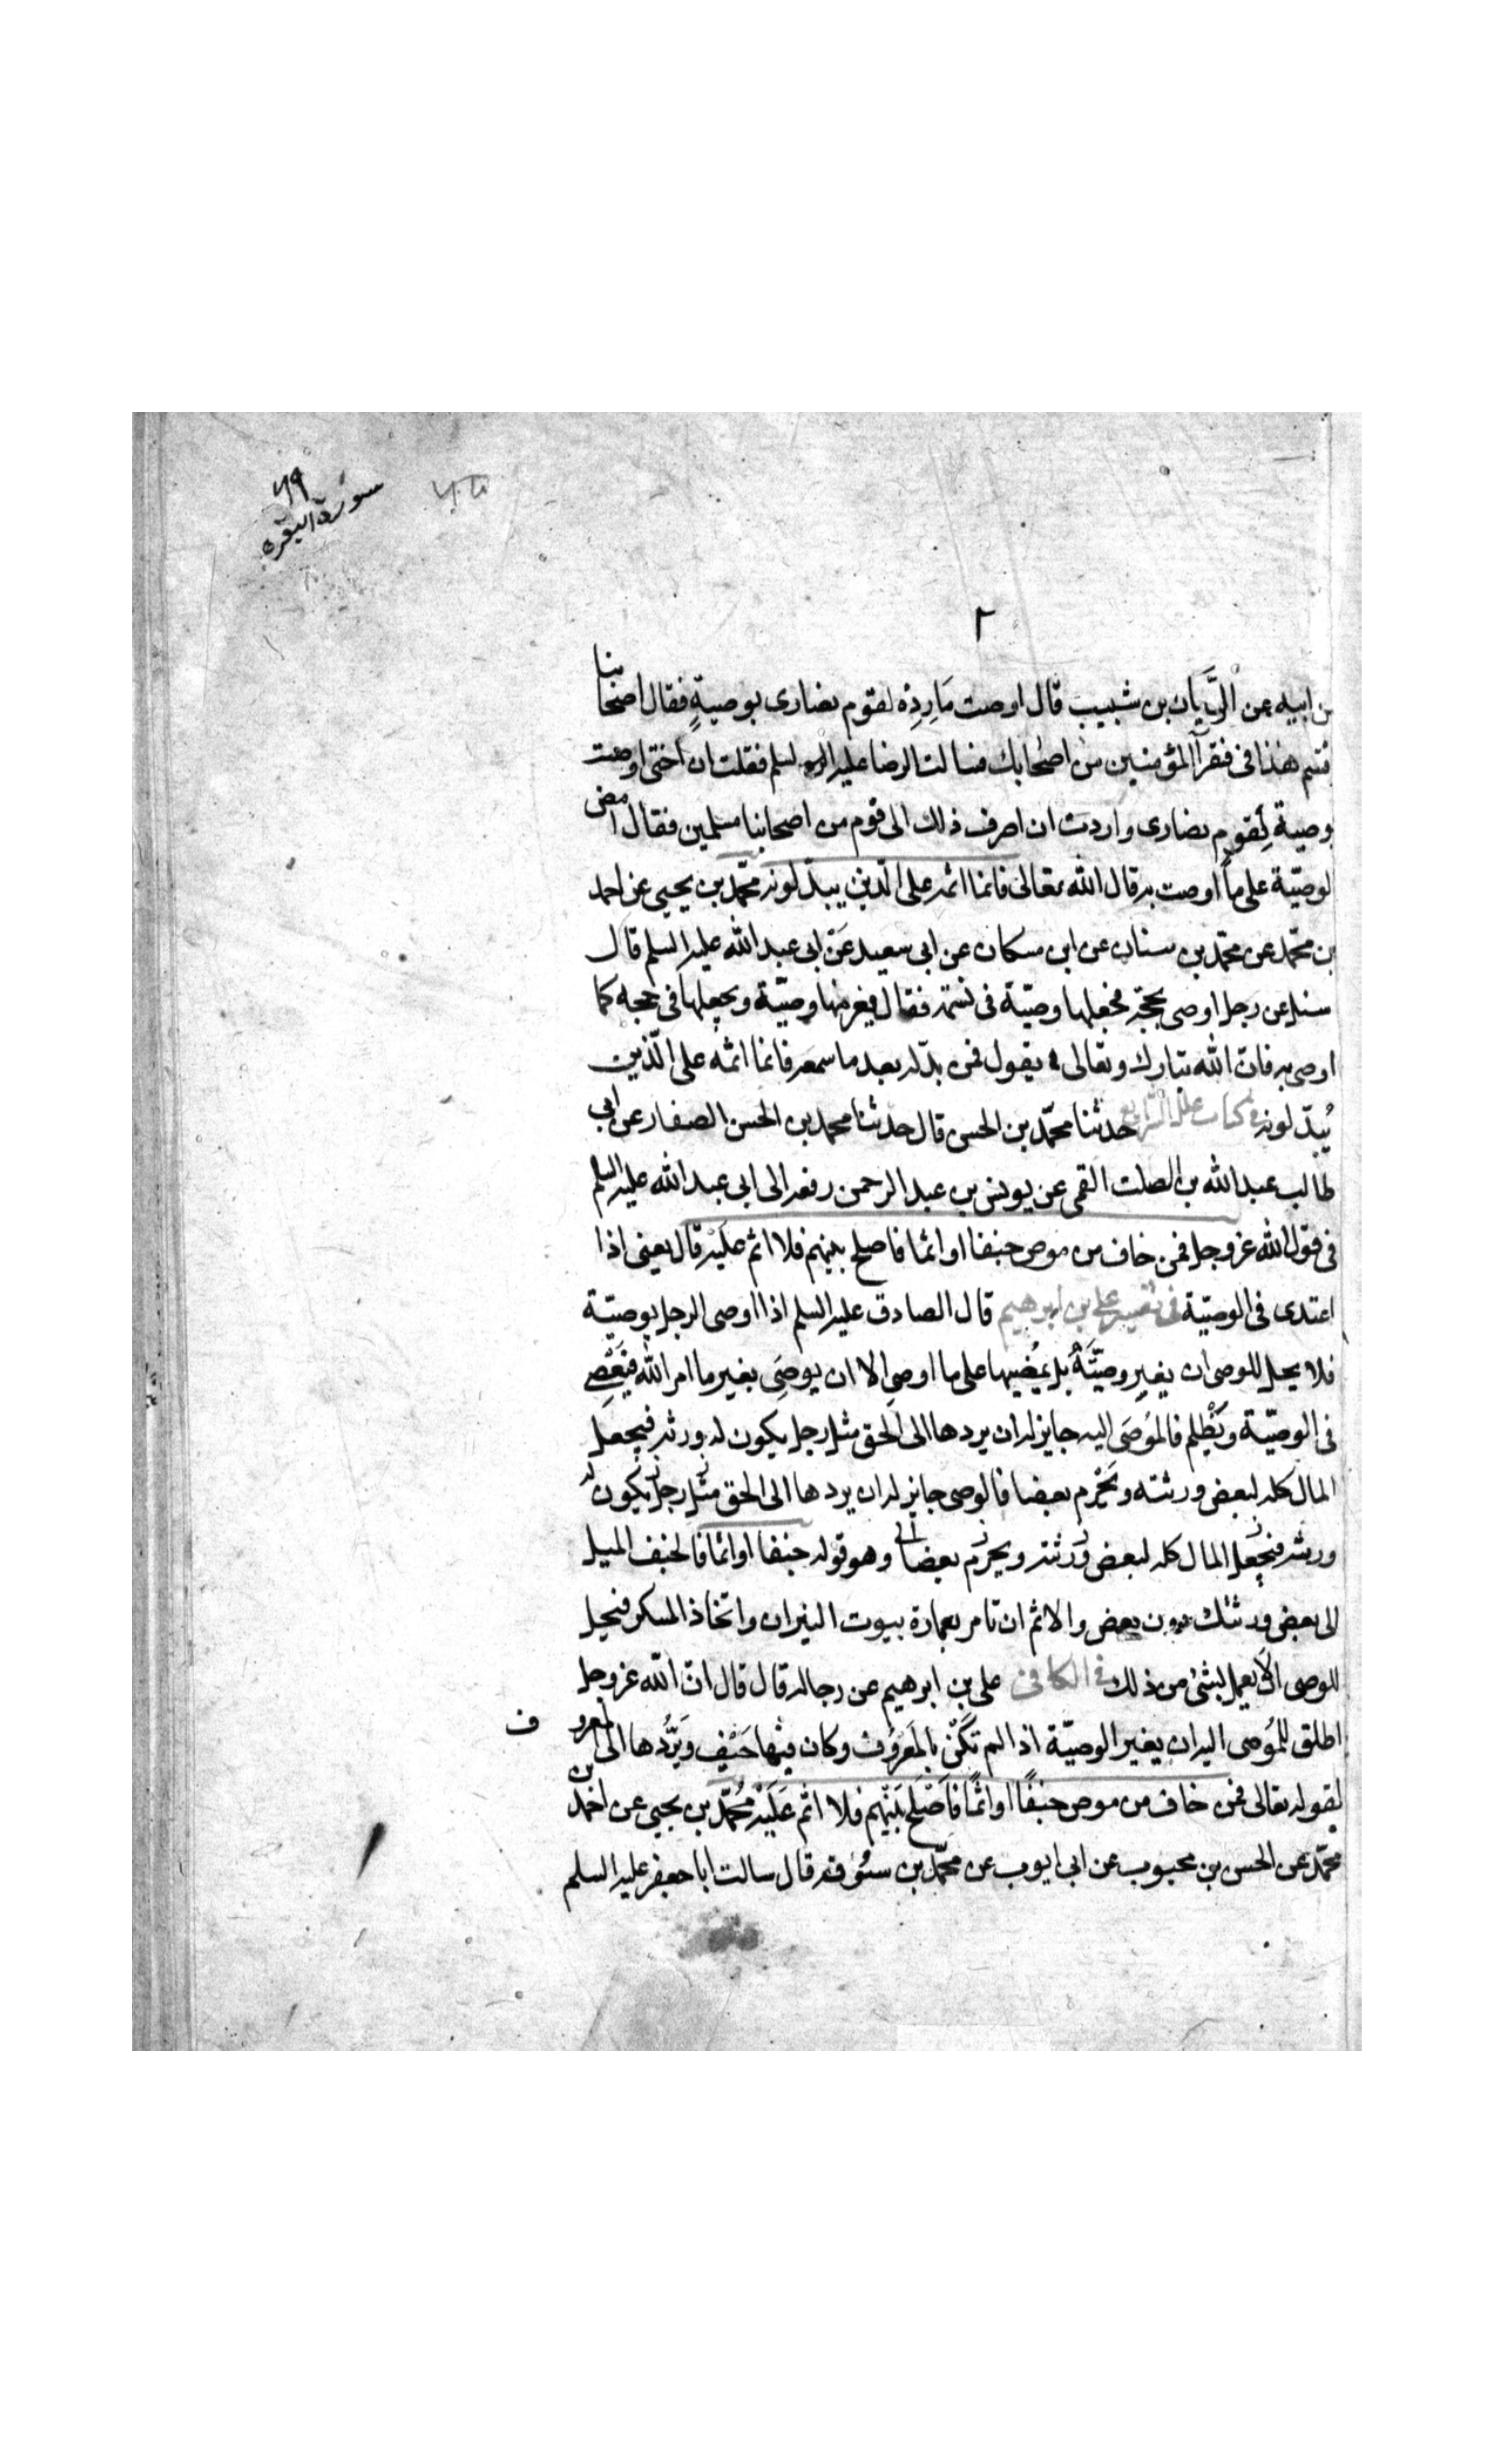 ٦٩
سورة البقره
٢
بن ابيه عن الرَّيان بن شبيب قال اوصت مَارِدَة لقوم نصارى بوصيةٍ فقال اصحابنا
قسم هذا فى فقرآ المؤمنين من اصحابك فسالت الرضا عليه السلم فقلت ان اختى اوصت
وصية لِقوم نصارى واردت ان اصرف ذلك الى قوم من اصحابنا مسلمين فقال امض
لوصيّة على ما اوصت به قال الله تعالى فانما اثمه على الّذين يبدّلونه محمّد بن يحيى عن احمد
بن محمّد عن محمّد بن سنان عن ابن مسكان عن ابى سعيد عن ابى عبد الله عليه السلم قال
سئل عن رجل اوصى بحجّة فجعلها وصيّة فى نسمة فقال يغرمها وصيّة ويجعلها فى حجه كما
اوصى به فان الله تبارك وتعالى يقول فمن بدّله بعد ما سمعه فانما اثمه على الّذين
يُبدّلونه فى كتاب علل الشرايع حدثنا محمّد بن الحسن قال حدثنا محمد بن الحسن الصفار عن ابى
طالب عبد الله بن الصلت القمى عن يونس بن عبد الرحمن رفعه الى ابى عبد الله عليه السلم
فى قول الله عز وجل فمن خاف من موص جنفا او اثما فاصلح بينهم فلا اثم عليه قال يعنى اذا
اعتدى فى الوصيّة فى تفسير على بن ابرهيم قال الصادق عليه السلم اذا اوصى الرجل بوصيّة
فلا يحل للوصى ان يغير وصيّتَهُ بل يمُضيها على ما اوصى الا ان يوصى بغير ما امر الله فيَعْصِى
فى الوصيّة ويَظْلِم فالمُوصَى اليه جايز له ان يردها الى الحق مثل رجل يكون له ورثه فيجعل
المال كله لبعض ورثته ويَحْرِم بعضا فالوصى جايز له ان يردها الى الحق مثل رجل يكون له
ورثه فيجعل المال كله لبعض ورثته ويحرم بعضا الى وهو قوله جنفا او اثما فالجنف الميل
لى بعض ورثتك دون بعض والاثم ان تامر بعمارة بيوت النيران واتخاذ المسكر فيحل
للوصى الا يعمل بشئ من ذلك فى الكافى على بن ابرهيم عن رجاله قال قال ان الله عز وجل
اطلق للمُوصى اليه ان يغير الوصيّة اذا لم تَكُنْ بالمَعْرُوُف وكان فيْها حَيْف ويَرُدُّها الى المعروف
لقوله تعالى فمن خاف من موص جنفًا او اثمًا فاَصْلَح بَيْنَهم فلا اثم عَلَيْه مُحمّد بن يحيى عن احمد بن
محمّد عن الحسن بن محبوب عن ابى ايوب عن محمّد بن سوقه قال سالت ابا جعفر عليه السلم